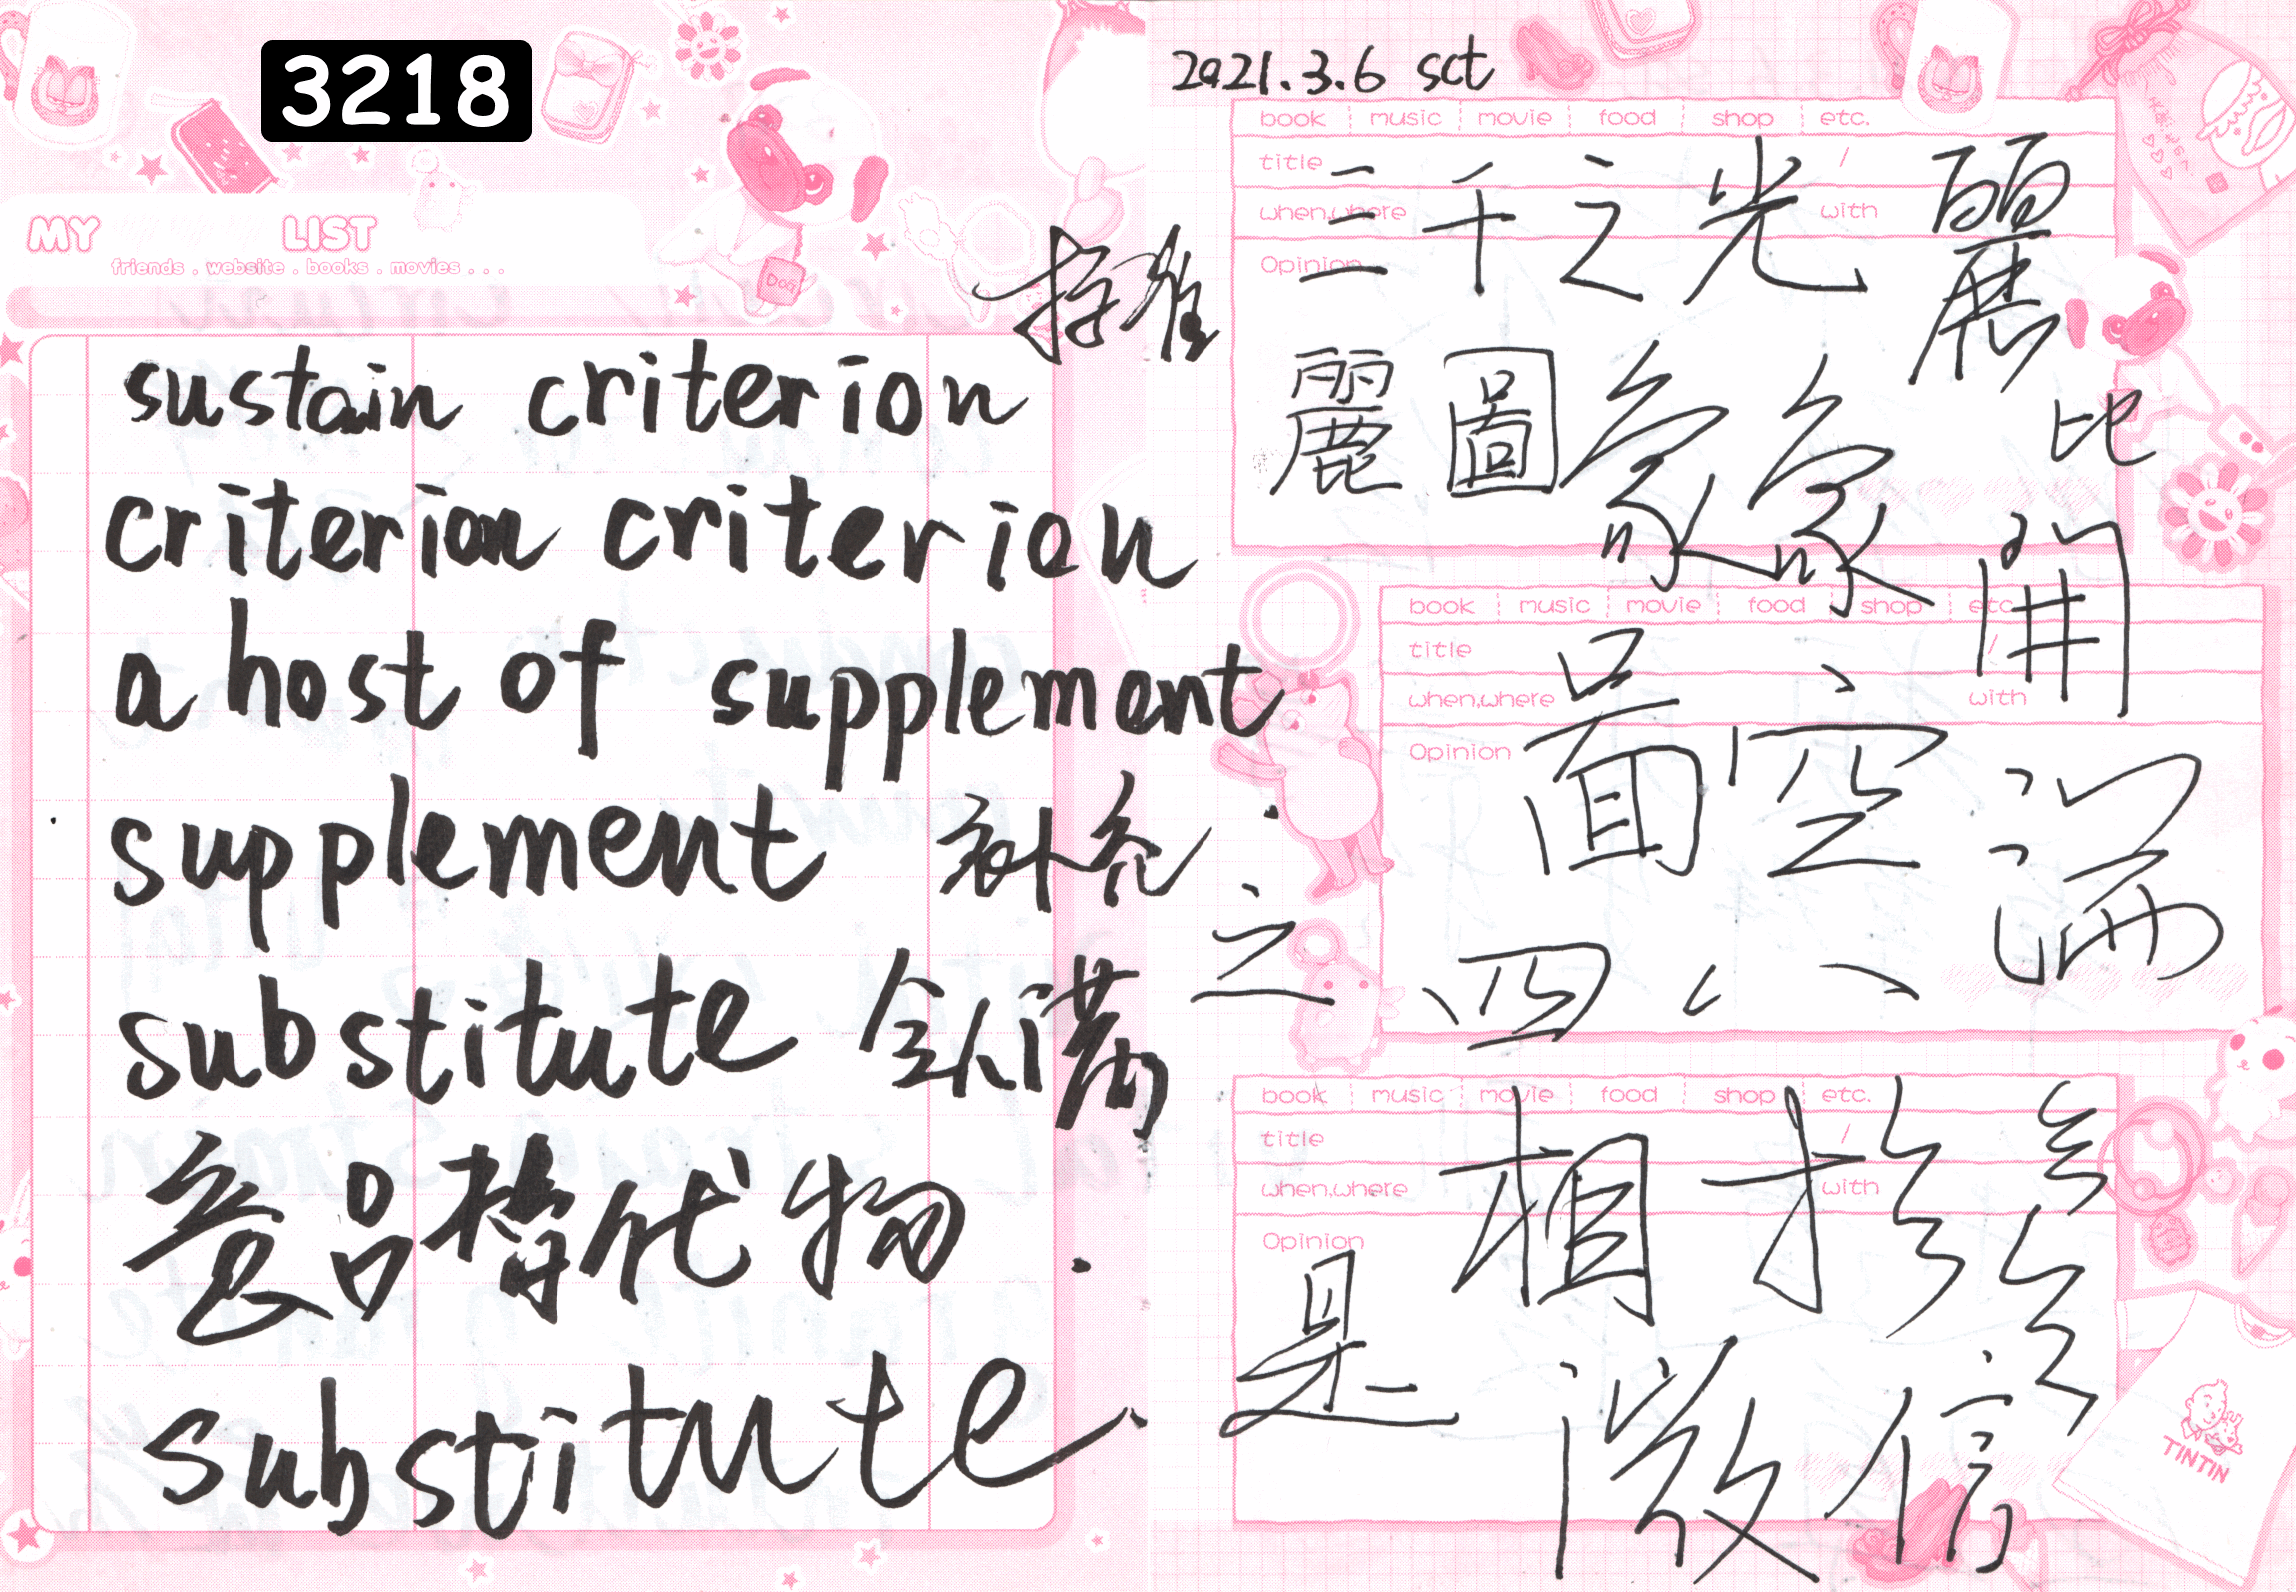 3218
MY LIST
friends . website . books . movies . . .
sustain criterion
criterion criterion
a host of supplement
supplement 补充
substitute
替代物
substitute
2021.3.6 sct
book music movie food shop etc.
title /
when,where with
Opinion
三千之光 麗
麗圖象象
比
開
book music movie food shop etc
title /
when,where with
Opinion
面空
满
之四八
book music movie food shop etc.
title /
when,where with
Opinion
相
是微信
Dog
TINTIN